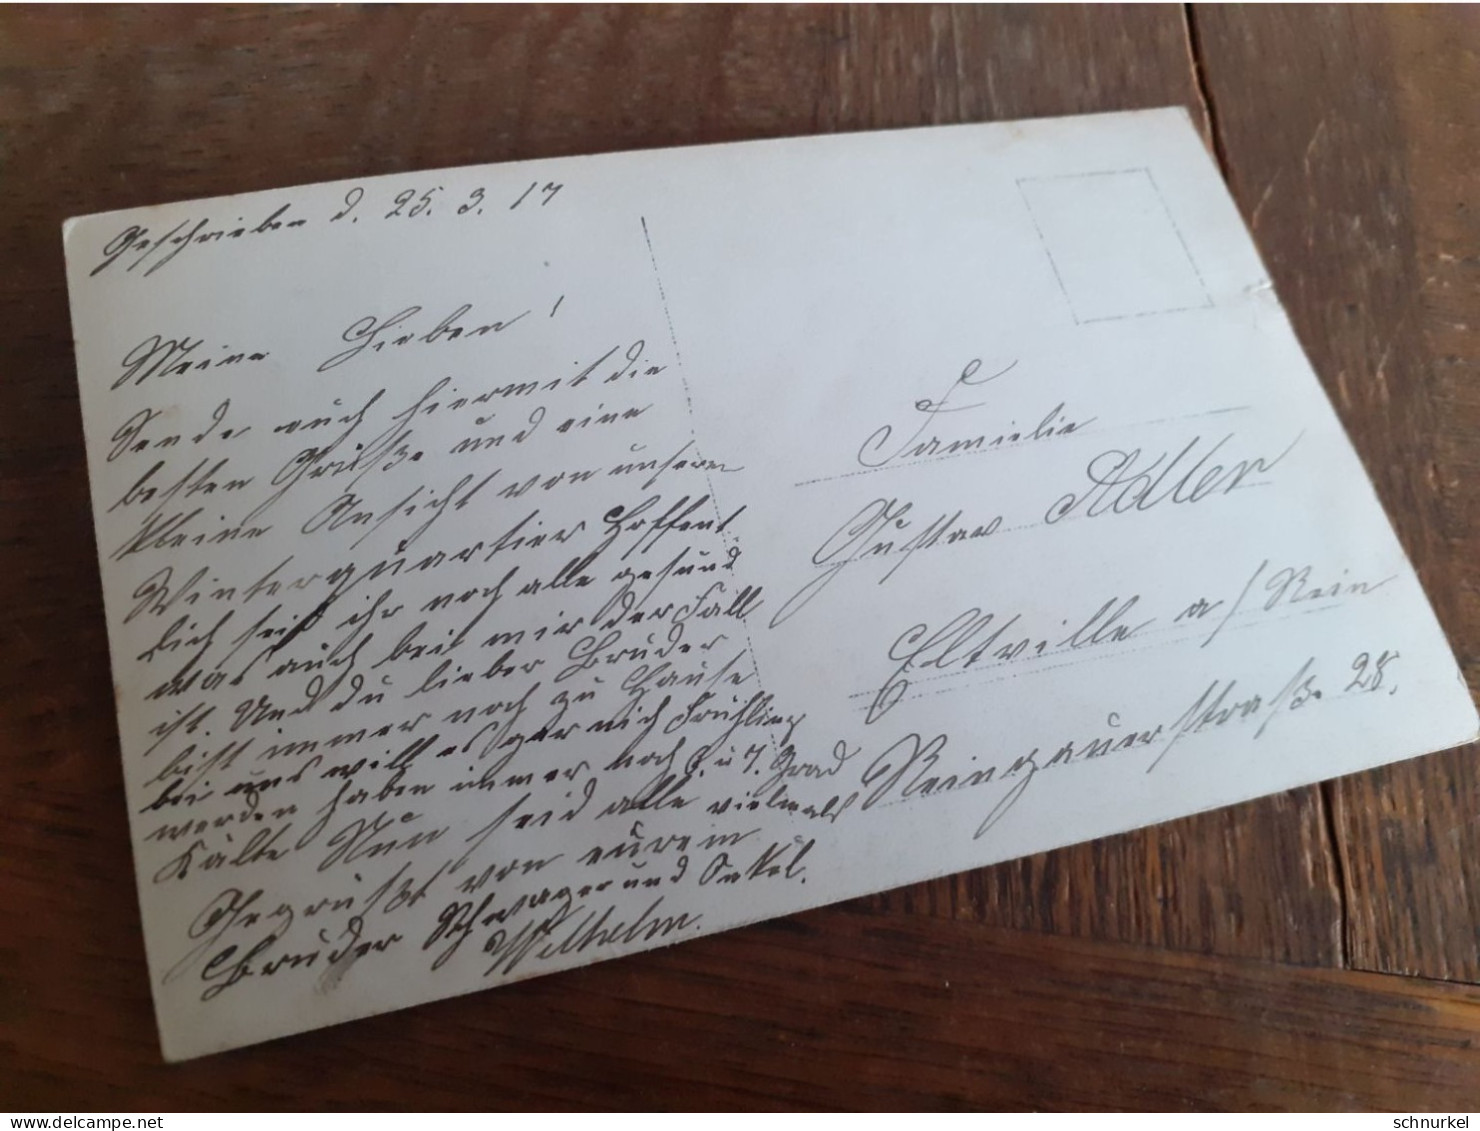 Geschrieben d. 25. 3. 17
Meine Lieben!
Sende euch hiermit die
besten Grüße und eine
kleine Ansicht von unserm
Winterquartier Hoffent
lich seit ihr noch alle gesund
was auch bei mir der Fall
ist. Und du lieber Bruder
bist immer noch zu Hause
bei uns will es gar nich Frühling
werden haben immer noch 6. u 7. Grad
Kälte Nun seid alle vielmals
Gegrüßt von eurem
Bruder Schwager und Onkel.
Wilhelm.
Familie
Gustav Adler
Eltville a/Rein
Reingauerstraße 28.
schnurkel